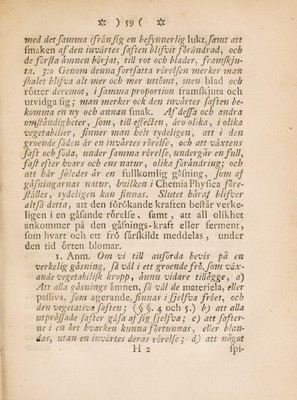 * ) 59 ( *
med det samma ifrånsig en besynnerlig lukt, samt att
smaken af den invärtes saften blifvit förändrad, och
de första ämnen börjat, till rot och blader, framskju-
ta. 3:o Genom denna fortsatta rörelsen merker man
skalet blifva alt mer och mer uttömt, men blad och
rötter deremot, i samma proportion framskjuta och
utvidga sig; man merker ock den invärtes saften be-
komma en ny och annan smak. Af dessa och andra
omständigheter, som, till effecten, äro olika, i olika
vegetabilier, finner man helt tydeligen, att i den
groende säden är en invärtes rörelse, och att växtens
saft och föda, under samma rörelse, undergår en full,
fast efter hvars och ens natur, olika förändring; och
att här således är en fullkomlig gåsning, som af
gåsningarnas natur, hvilken i Chemia Physica före-
ställes, tydeligen kan finnas. Slutet häraf blifver
altså detta, att den förökande kraften består verke-
ligen i en gåsande rörelse, samt, att all olikhet
ankommer på den gåsnings-kraft eller ferment,
som hvart och ett frö särskildt meddelas, under
den tid örten blomar.
1. Anm. Om vi till anförda bevis på en
verkelig gåsning, så väl i ett groende frö, som väx-
ande vegetabilisk kropp, ännu vidare tillägge, a)
Att alla gåsnings ämnen, så väl de materiela, eller
passiva, som agerande, finnas i sjelfva fröet, och
den vegetativa saften; (§ §. 4 och 5.) b) att alla
utprässade safter gåsa af sig sjelfva; c) att safter-
ne i en ört hvarken kunna förtunnas, eller blan-
das, utan en invärtes deras rörelse; d) att något
H 2 spi-